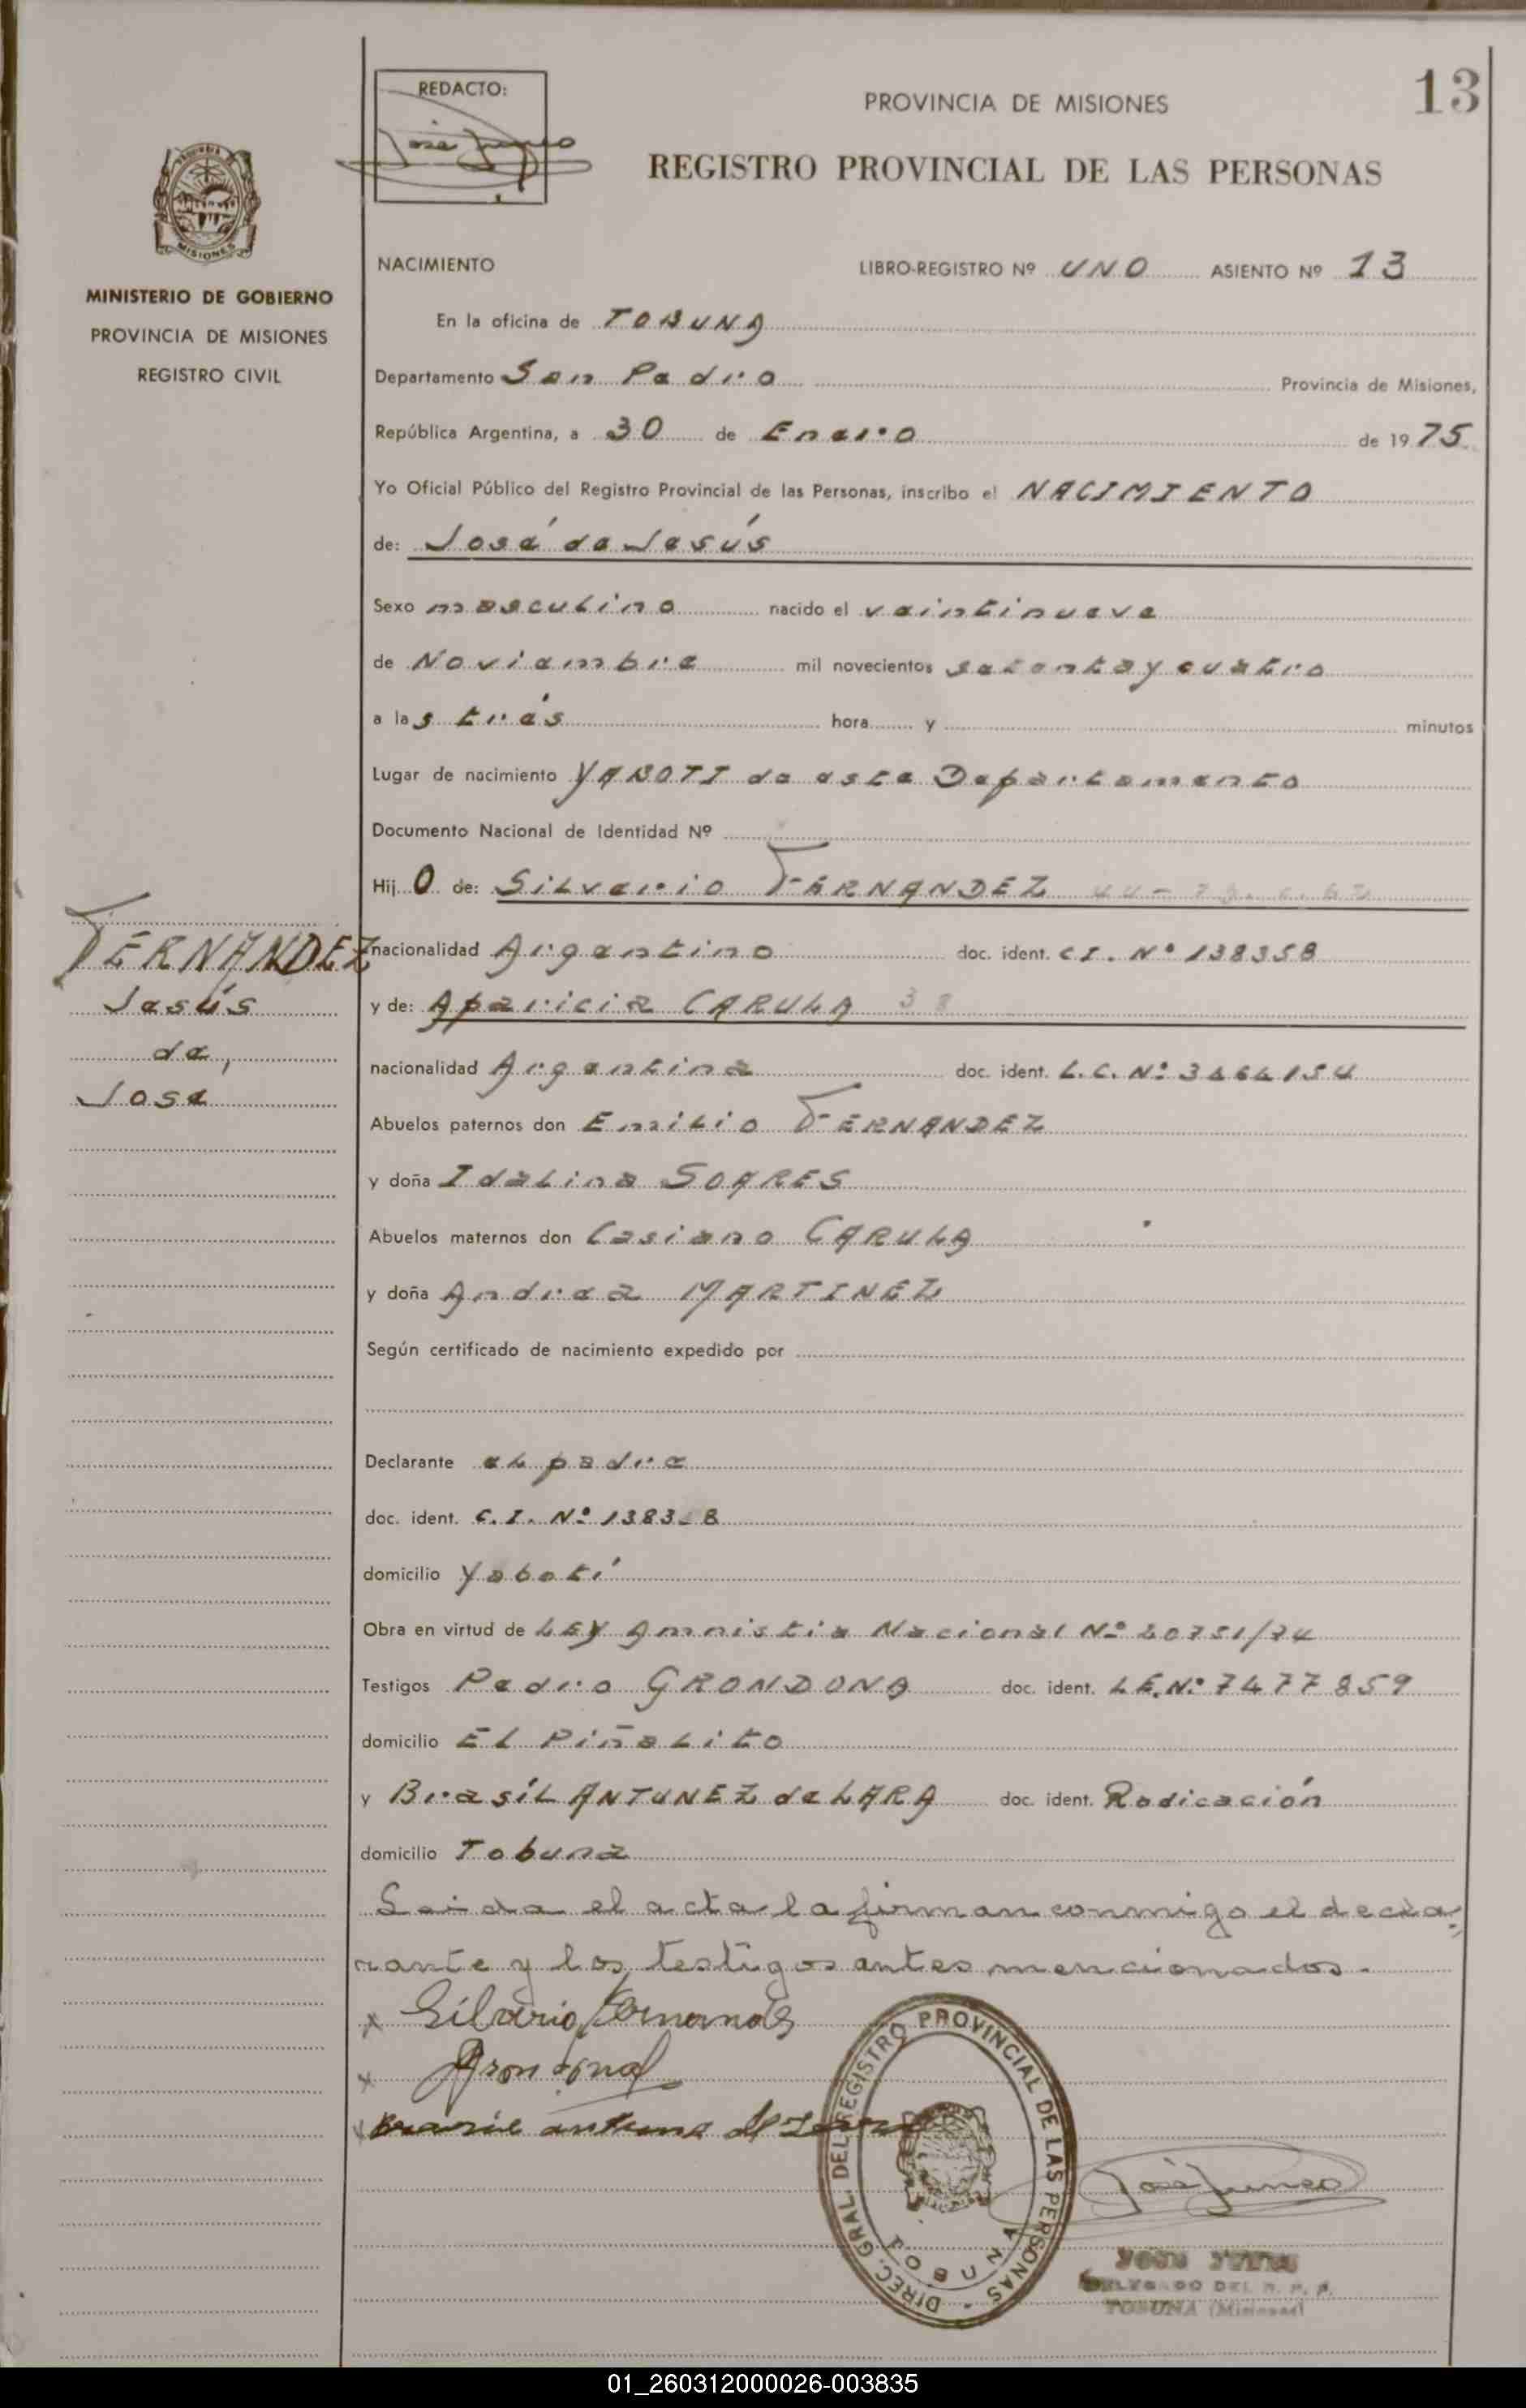 13
REDACTO:
José Junco
PROVINCIA DE MISIONES
REGISTRO PROVINCIAL DE LAS PERSONAS
MISIONES
MINISTERIO DE GOBIERNO
PROVINCIA DE MISIONES
REGISTRO CIVIL
NACIMIENTO LIBRO-REGISTRO Nº UNO ASIENTO Nº 13
En la oficina de TOBUNA
Departamento San Pedro Provincia de Misiones,
República Argentina, a 30 de Enero de 1975
Yo Oficial Público del Registro Provincial de las Personas, inscribo el NACIMIENTO
de: José de Jesús
Sexo masculino nacido el veintinueve
de Noviembre mil novecientos setenta y cuatro
a las trés hora y minutos
Lugar de nacimiento YABOTI de este Departamento
Documento Nacional de Identidad Nº
Hijo de: Silverio FERNANDEZ
FERNANDEZ
Jesús
de,
José
nacionalidad Argentino doc. ident. C.I. Nº 138358
y de: Aparicia CARULA 38
nacionalidad Argentina doc. ident. L.C. Nº
Abuelos paternos don Emilio FERNANDEZ
y doña Idalina SOARES
Abuelos maternos don Casiano CARULA
y doña Andrea MARTINEZ
Según certificado de nacimiento expedido por
Declarante el padre
doc. ident. C.I. Nº
domicilio Yabotí
Obra en virtud de LEY Amnistia Nacional Nº 20751/74
Testigos Pedro GRONDONA doc. ident. L.E. Nº 7477859
domicilio El Piñalito
y Brasíl ANTUNEZ de LARA doc. ident. Radicación
domicilio Tobuna
Leida el acta la firman conmigo el decla-
rante y los testigos antes mencionados.
x Silverio Fernandes
x Grondona
x Brasil antunes de Lara
DIREC. GRAL. DEL REGISTRO PROVINCIAL DE LAS PERSONAS
TOBUNA
José Junco
DELEGADO DEL R. P. P.
TOBUNA (Misiones)
01_260312000026-003835